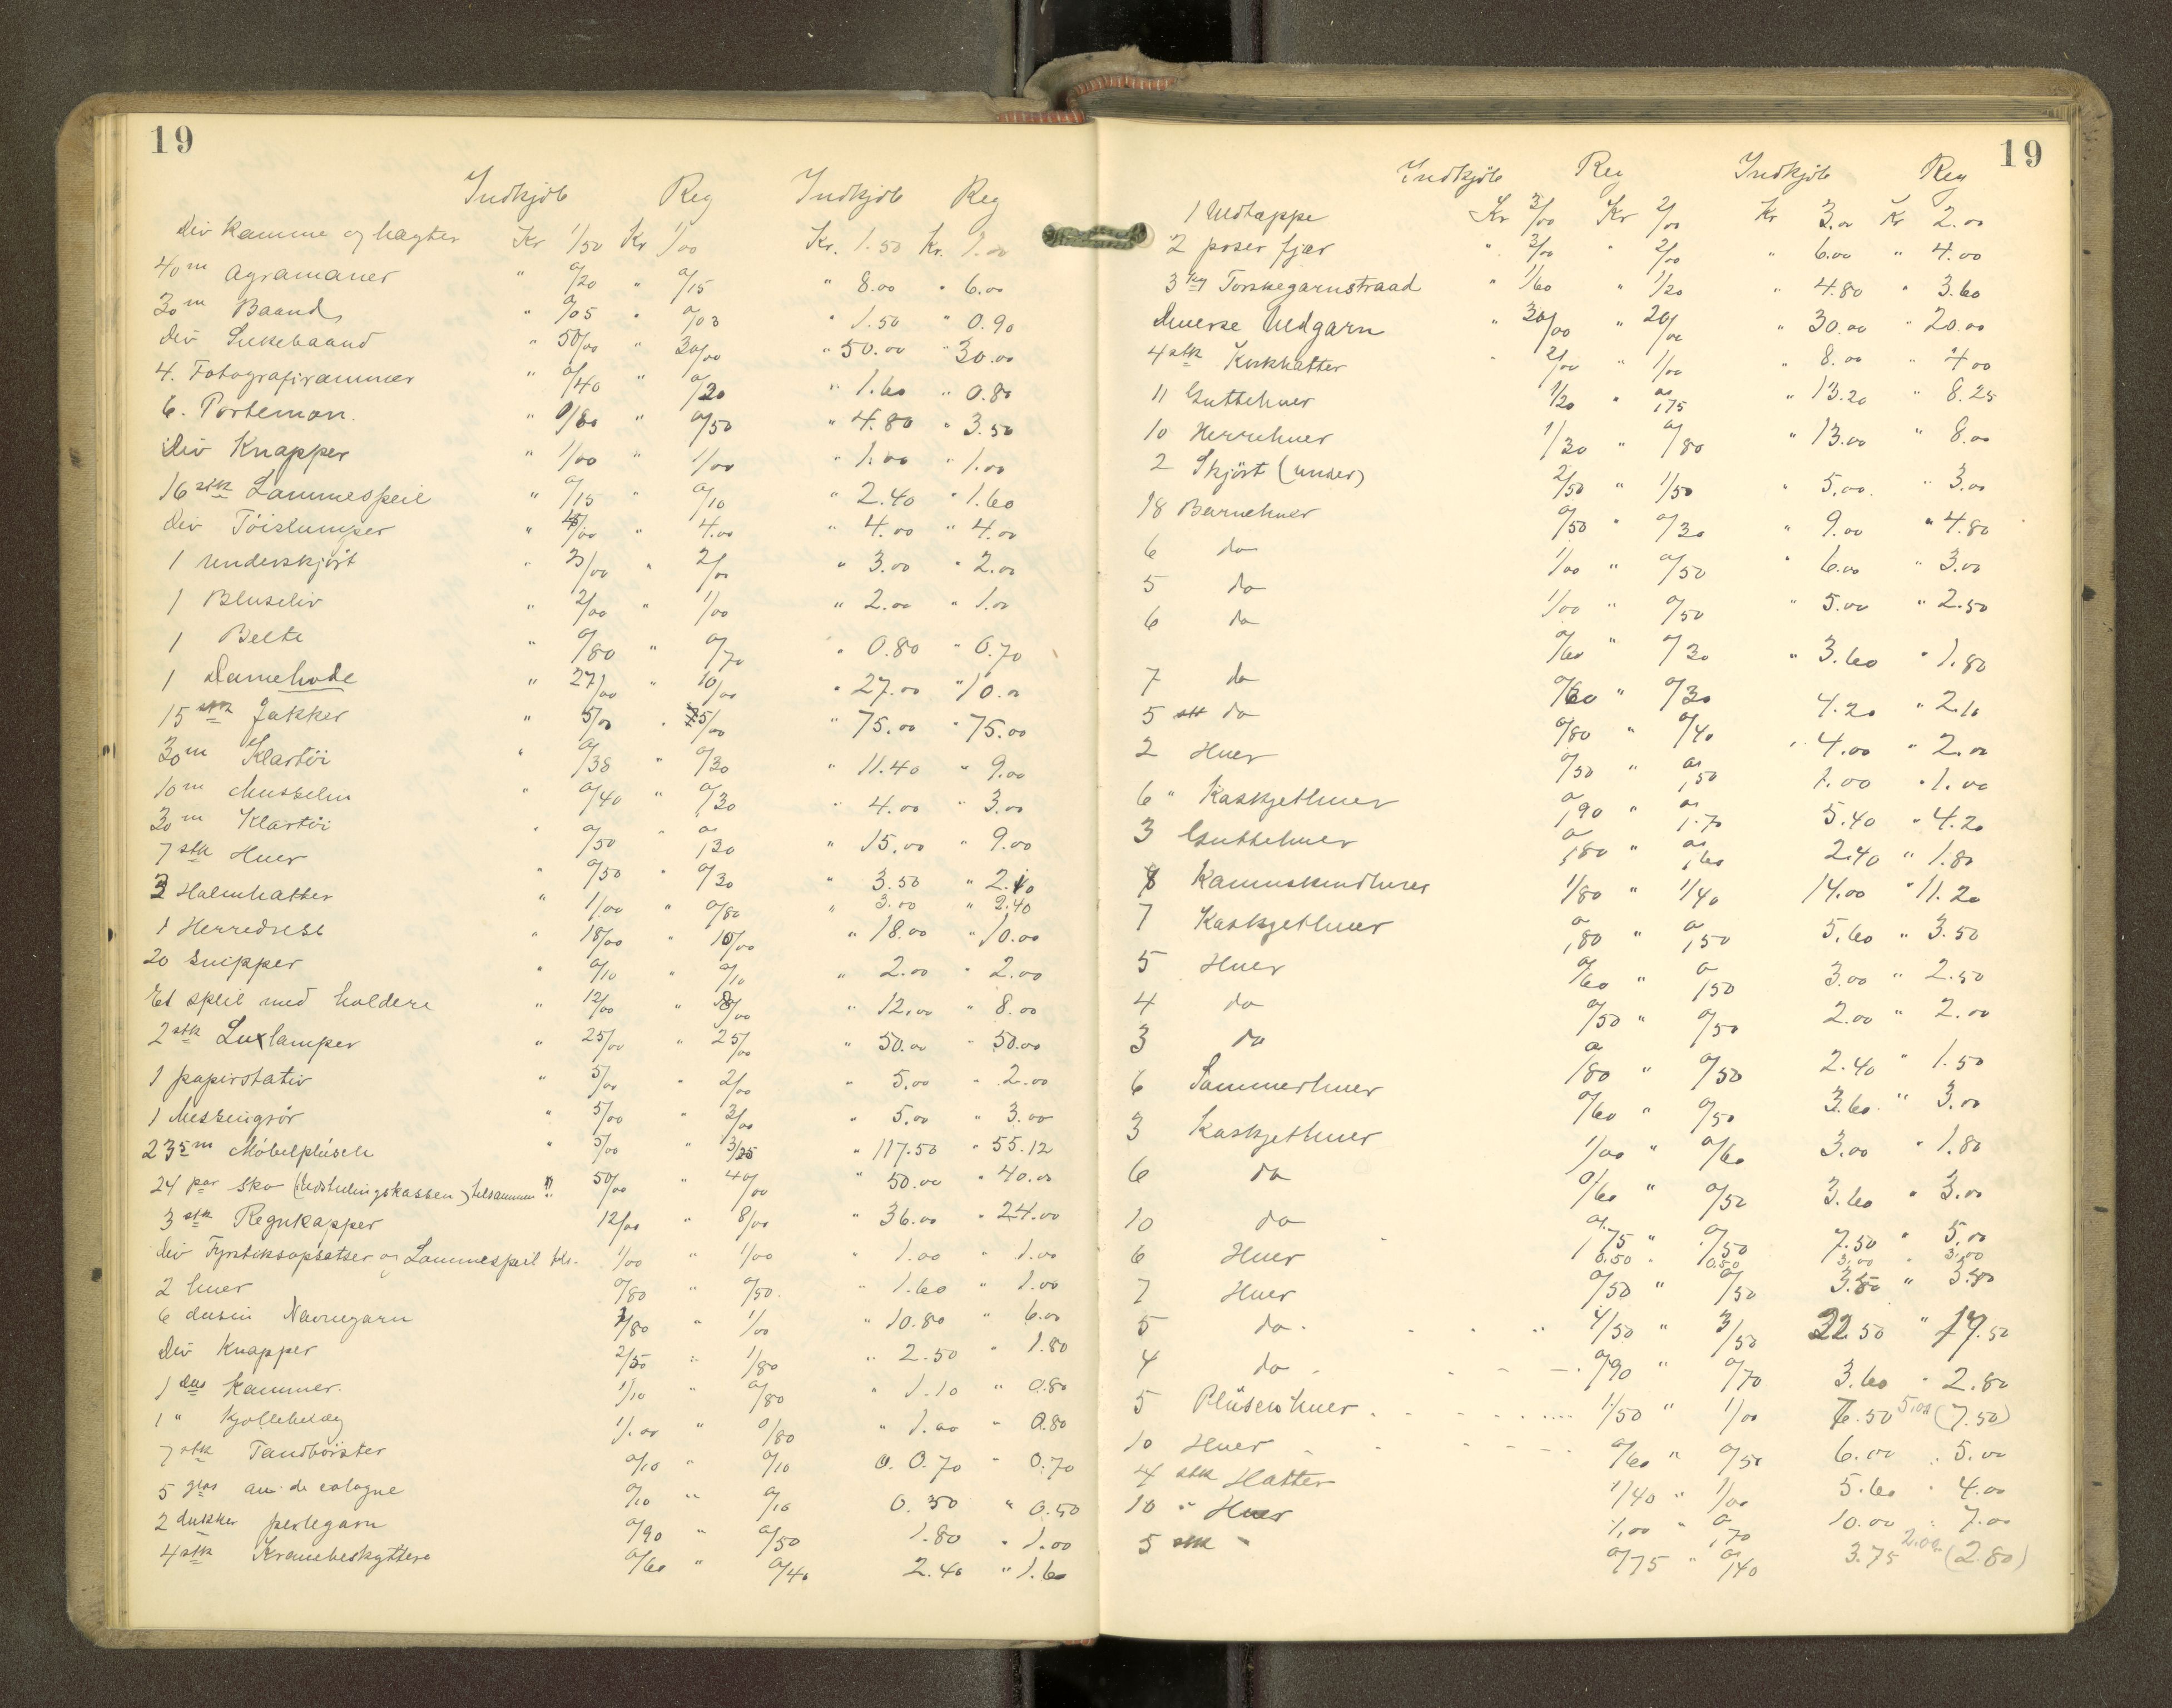 19
Indkjöb Reg Indkjöb Reg
Div Kamme og hægter Kr 1/50 Kr 1/00 Kr. 1.50 Kr. 1.00
40 m Agramaner " 0/20 " 0/15 " 8.00 " 6.00
30 m Baand " 0/05 " 0/03 " 1.50 " 0.90
Div Silkebaand " 50/00 " 30/00 " 50.00 " 30.00
4. Fotografirammer " 0/40 " 0/20 " 1.60 " 0.80
6. Portemon. " 0/80 " 0/50 " 4.80 " 3.50
Div Knapper " 1/00 " 1/00 " 1.00 " 1.00
16 stk Lommespeil " 0/15 " 0/10 " 2.40 " 1.60
Div Töistumper " 4/00 " 4.00 " 4.00 " 4.00
1 Underskjört " 3/00 " 2/00 " 3.00 " 2.00
1 Bluseliv " 2/00 " 1/00 " 2.00 " 1.00
1 Belte " 0/80 " 0/70 " 0.80 " 0.70
1 Damekode " 27/00 " 10/00 " 27.00 " 10.00
15 stk Jakker " 5/00 " 5/00 " 75.00 " 75.00
30 m Klartöi " 0/38 " 0/30 " 11.40 " 9.00
10 m Musselin " 0/40 " 0/30 " 4.00 " 3.00
30 m Klartöi " 0/50 " 0/30 " 15.00 " 9.00
7 stk Huer " 0/50 " 0/30 " 3.50 " 2.10
3 Halmhatter " 1/00 " 0/80 " 3.00 " 2.40
1 Herredress " 18/00 " 10/00 " 18.00 " 10.00
20 Snipper " 0/10 " 0/10 " 2.00 " 2.00
Et speil med holdere " 12/00 " 8/00 " 12.00 " 8.00
2 stk Luxlamper " 25/00 " 25/00 " 50.00 " 50.00
1 papirstativ " 5/00 " 2/00 " 5.00 " 2.00
1 Messingrör " 5/00 " 3/00 " 5.00 " 3.00
23 5 m Möbelplüsch " 5/00 " 3/25 " 117.50 " 55.12
24 par sko (Udstillingskassen) tilsammen !! 50/00 " 40/00 " 50.00 " 40.00
3 stk Regnkapper 12/00 " 8/00 " 36.00 " 24.00
Div Fyrstiksopsatser og Lommespeil tils. 1/00 " 1/00 " 1.00 " 1.00
2 huer 0/80 " 0/50. " 1.60 " 1.00
6 dusin Navnegarn 1/80 " 1/00 " 10.80 " 6.00
Div Knapper 2/50 " 1/80 " 2.50 " 1.80
1 dus Kammer. 1/10 " 0/80 " 1.10 " 0.80
1 " Kjolebelæg 1/00 " 0/80 " 1.00 " 0.80
7 stk Tandbörster 0/10 " 0/10 0.70 " 0.70
5 glas au de cologne 0/10 " 0/10 0.50 " 0.50
2 dukker perlegarn 0/90 " 0/50 1.80 " 1.00
4 stk Kravebeskyttere 0/60 " 0/40 2.40 " 1.60
19
Indkjöb Reg Indkjöb Reg
1 Uldtæppe Kr 3/00 Kr 2/00 Kr 3.00 Kr 2.00
2 poser fjær " 3/00 " 2/00 " 6.00 " 4.00
3 kg Torskegarnstraad " 1/60 " 1/20 " 4.80 " 3.60
Diverse Uldgarn " 30/00 " 20/00 " 30.00 " 20.00
4 stk Korkhatter " 2/00 " 1/00 " 8.00 " 4.00
11 Guttehuer 1/20 " 0/75 " 13.20 " 8.25
10 Herrehuer 1/30 " 0/80 " 13.00 " 8.00
2 Skjört (under) 2/50 " 1/50 " 5.00. " 3.00
18 Barnehuer 0/50 " 0/30 " 9.00 " 4.80
6 do 1/00 " 0/50 " 6.00 " 3.00
5 do 1/00 " 0/50 " 5.00 " 2.50
6 do 0/60 " 0/30 " 3.60 " 1.80
7 do 0/60 " 0/30 4.20 " 2.10
5 stk do 0/80 " 0/40 " 4.00 " 2.00
2 Huer 0/50 " 0/50 1.00 " 1.00
6 " Kaskjethuer 0/90 " 0/70 5.40 " 4.20
3 Guttehuer 0/80 " 0/60 2.40 " 1.80
8 Kaninskindhuer 1/80 " 1/40 14.00 " 11.20
7 Kaskjethuer 0/80 " 0/50 5.60 " 3.50
5 Huer 0/60 " 0/50 3.00 " 2.50
4 do 0/50 " 0/50 2.00 " 2.00
3 do 0/80 " 0/50 2.40 " 1.50
6 Sommerhuer 0/60 " 0/50 3.60 " 3.00
3 Kaskjethuer 1/00 " 0/60 3.00 " 1.80
6 do 0/60 " 0/50 3.60 " 3.00
10 do 0/75 " 0/50 7.50 " 5.00
6 Huer 0.50 " 0.50 3.00 " 3.00
7 Huer 0/50 " 0/50 3.50 " 3.50
5 do. 4/50 " 3/50 22.50 " 17.50
4 do 0/90 " 0/70 3.60 " 2.80
5 Plüsenhuer 1/50 " 1/00 7.50 5.00 (7.50)
10 Huer 0/60 " 0/50 6.00 " 5.00
4 stk Hatter 1/40 " 1/00 5.60 " 4.00
10 " Huer 1/00 " 0/70 10.00 " 7.00
5 stk " 0/75 " 0/40 3.75 2.00 (2.80)